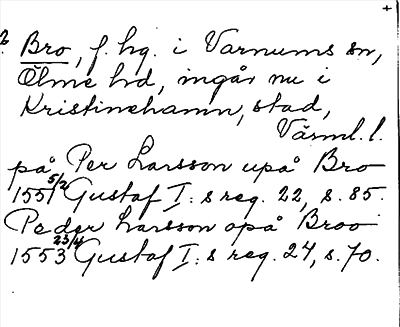 Bro, f. hg. i Varnums sn,
Ölme hd, ingår nu i
Kristinehamn, stad,
Värml. l.
på Per Larsson upå Bro
1551 5/2 Gustaf I:s reg. 22, s. 85.
Peder Larsson opå Broo
1553 23/4 Gustaf I:s reg. 24, s. 70.